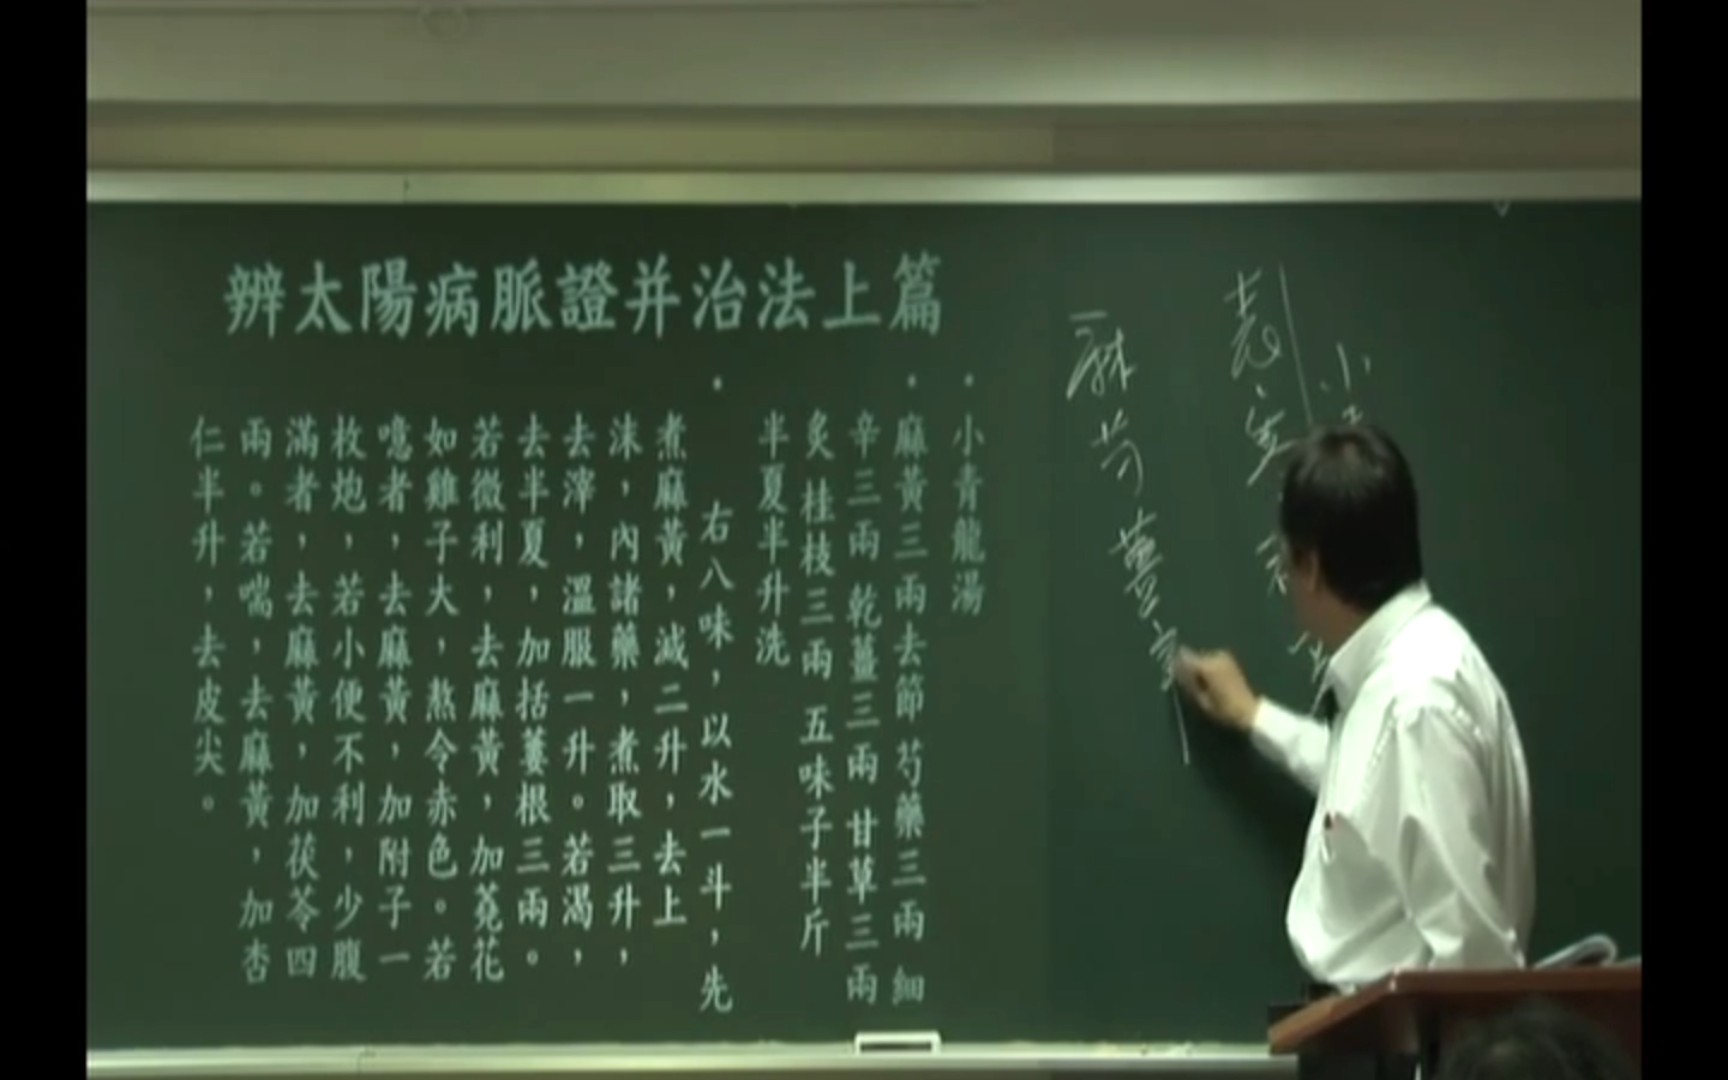 辨太陽病脈證并治法上篇
・小青龍湯
・麻黃三兩去節 芍藥三兩 細
辛三兩 乾薑三兩 甘草三兩
炙 桂枝三兩 五味子半斤
半夏半升洗
・右八味，以水一斗，先
煮麻黃，減二升，去上
沫，內諸藥，煮取三升，
去滓，溫服一升。若渴，
去半夏，加括蔞根三兩。
若微利，去麻黃，加蕘花
如雞子大，熬令赤色。若
噫者，去麻黃，加附子一
枚炮，若小便不利，少腹
滿者，去麻黃，加茯苓四
兩。若喘，去麻黃，加杏
仁半升，去皮尖。
小
表
麻芍薑